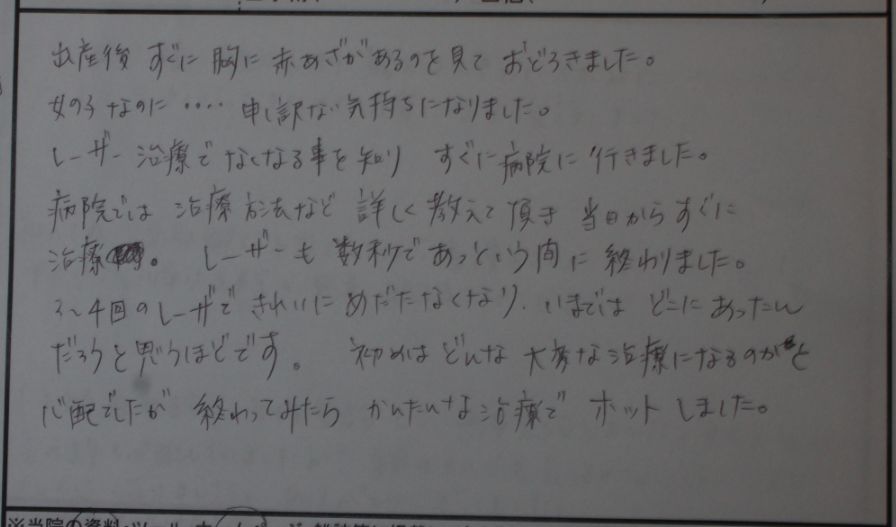 出産後 すぐに 胸に 赤あざがあるのを見て おどろきました。
女の子なのに ・・・・ 申し訳ない気持ちになりました。
レーザー治療で なくなる事を知り すぐに病院に行きました。
病院では 治療方法など 詳しく教えて頂き 当日からすぐに
治療。 レーザーも 数秒であっという間に 終わりました。
3〜4回のレーザで きれいにめだたなくなり、いまでは どこにあったん
だろうと思うほどです。 初めは どんな 大変な治療になるのかと
心配でしたが 終わってみたら かんたんな治療で ホット しました。
※当院の資料